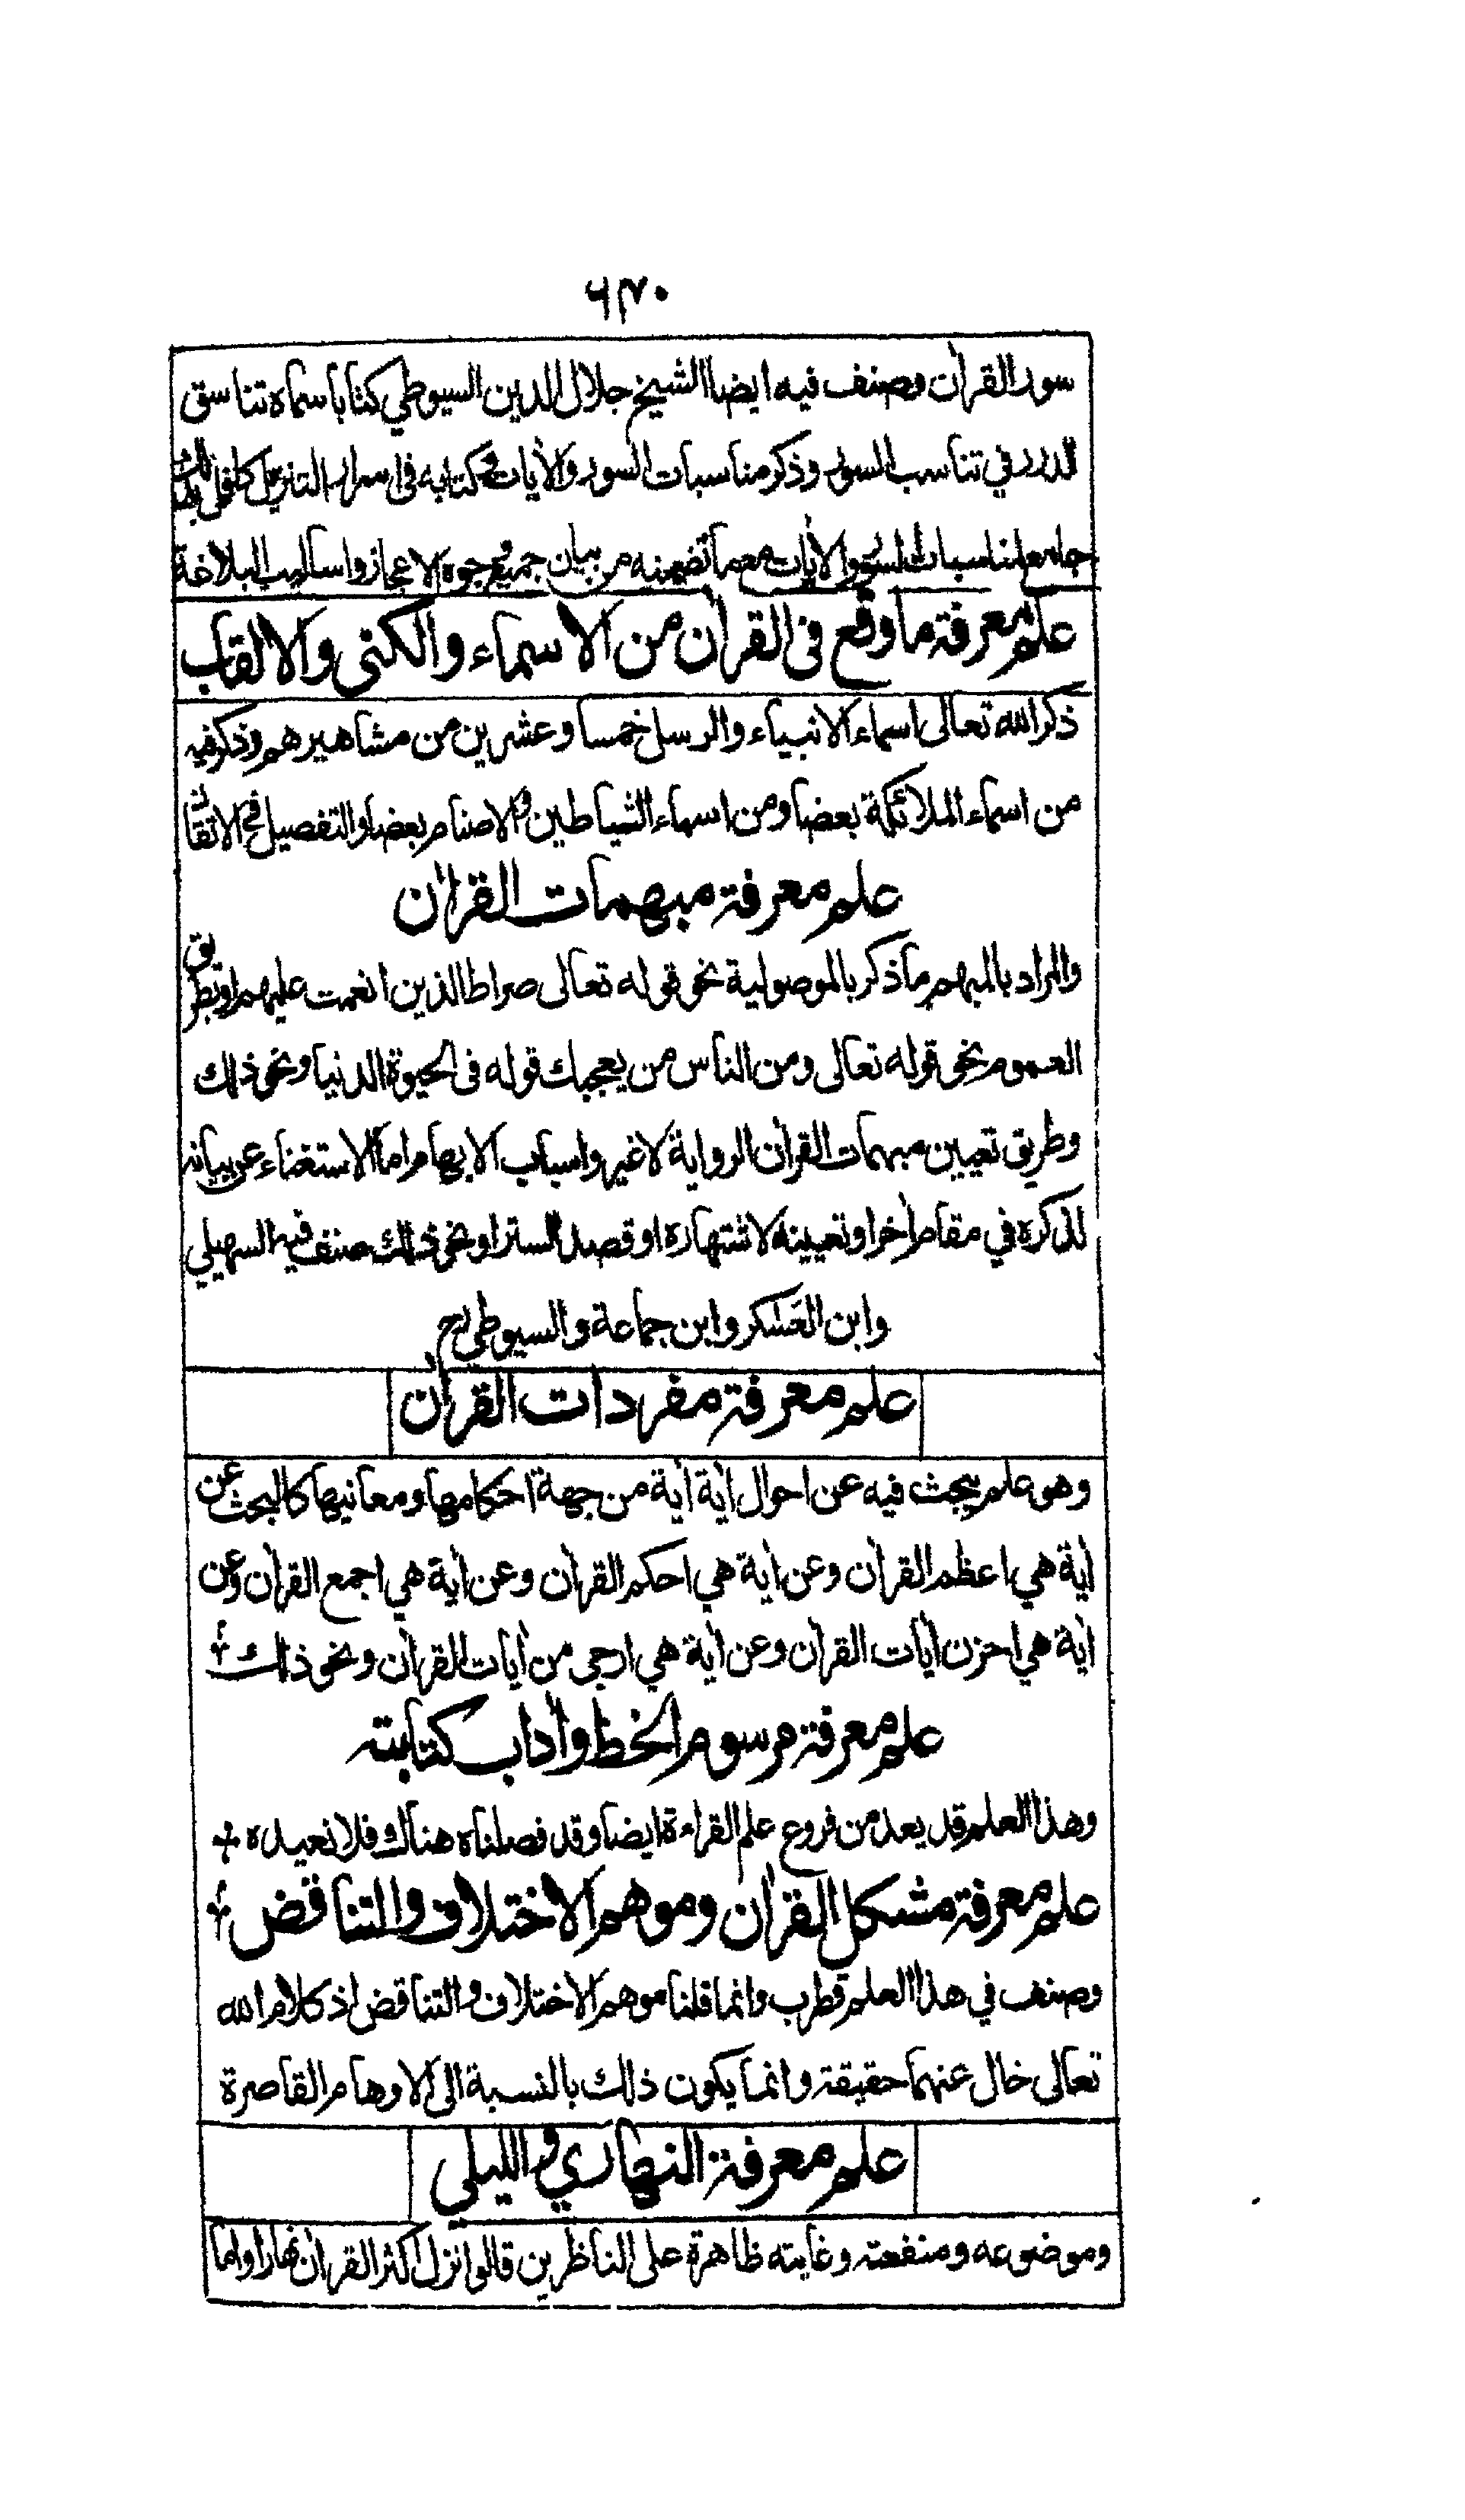 ۶۷۰
سور القرأن وصنف فيه ايضا الشيخ جلال الدين السيوطي كتابا سماه تناسق
الدرر في تناسب السور وذكر مناسبات السور والأيات في كتابه فى اسرار التنزيل كافل بذلك
جامع لمناسبات السور والأيات مع ما تضمنه من بيان جميع وجوه الاعجاز واساليب البلاغة
علم معرفة ما وقع فى القرأن من الاسماء والكنى والالقاب
ذكر الله تعالى اسماء الانبياء والرسل خمسا وعشرين من مشاهيرهم وذكر فيه
من اسماء الملائكة بعضا ومن اسماء الشياطين والاصنام بعضا والتفصيل فى الاتقان
علم معرفة مبهمات القرأن
والمراد بالمبهم ما ذكر بالموصولية نحو قوله تعالى صراط الذين انعمت عليهم او بطريق
العموم نحو قوله تعالى ومن الناس من يعجبك قوله فى الحيوة الدنيا ونحو ذلك
وطريق تعيين مبهمات القرأن الرواية لا غير واسباب الابهام اما الاستغناء عن بيانه
لذكره في مقام أخر او تعيينه لاشتهاره او قصد الستر او نحو ذلك صنف فيه السهيلي
وابن العسكر وابن جماعة والسيوطي رح
علم معرفة مفردات القرأن
وهو علم يبحث فيه عن احوال أية أية من جهة احكامها ومعانيها كالبحث عن
أية هي اعظم القرأن وعن أية هي احكم القرأن وعن أية هي اجمع القرأن وعن
أية هي احزن أيات القرأن وعن أية هي ارجى من أيات القرأن ونحو ذلك
علم معرفة مرسوم الخط وأداب كتابته
وهذا العلم قد يعد من فروع علم القراءة ايضا وقد فصلناه هناك فلا نعيده
علم معرفة مشكل القرأن وموهم الاختلاف والتناقض
وصنف في هذا العلم قطرب وانما قلنا موهم الاختلاف والتناقض اذ كلام الله
تعالى خال عنهما حقيقة وانما يكون ذلك بالنسبة الى الاوهام القاصرة
علم معرفة النهاري والليلي
وموضوعه ومنفعته وغايته ظاهرة على الناظرين قالوا نزل اكثر القرأن نهارا واما